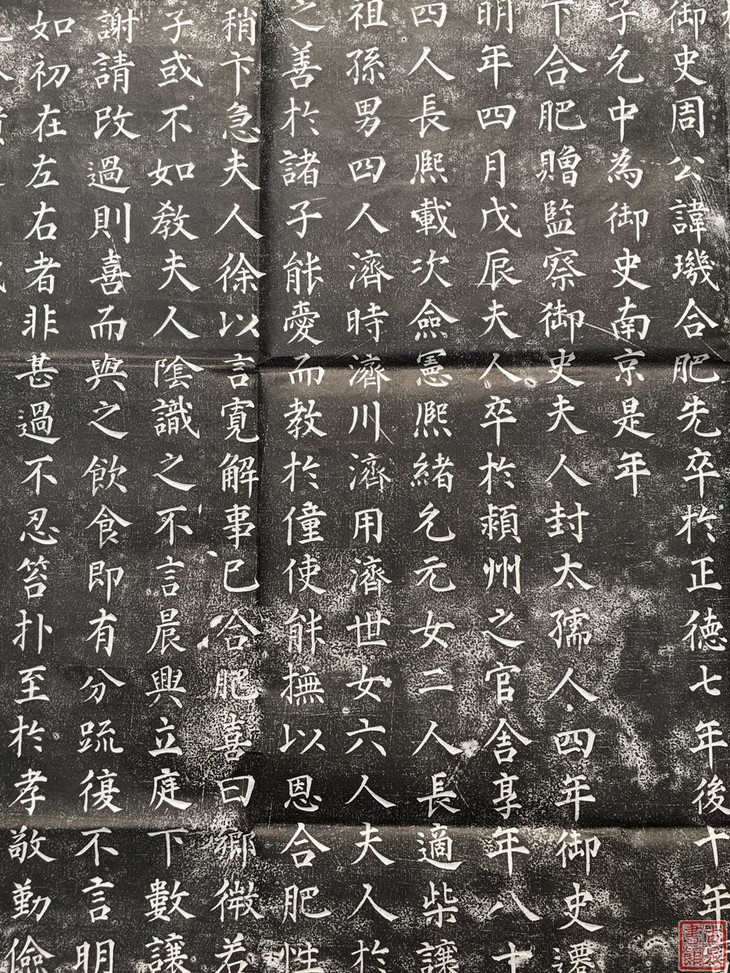 御史周公諱璣合肥先卒於正德七年後十年
子允中為御史南京是年
下合肥贈監察御史夫人封太孺人四年御史遷
明年四月戊辰夫人卒於潁州之官舍享年八十
四人長熙載次僉憲熙緒允元女二人長適柴讓
祖孫男四人濟時濟川濟用濟世女六人夫人於
之善於諸子能愛而教於僮使能撫以恩合肥性
稍卞急夫人徐以言寬解事已合肥喜曰鄉微若
子或不如教夫人陰識之不言晨興立庭下數讓
謝請改過則喜而與之飲食即有分疏復不言明
如初在左右者非甚過不忍笞扑至於孝敬勤儉